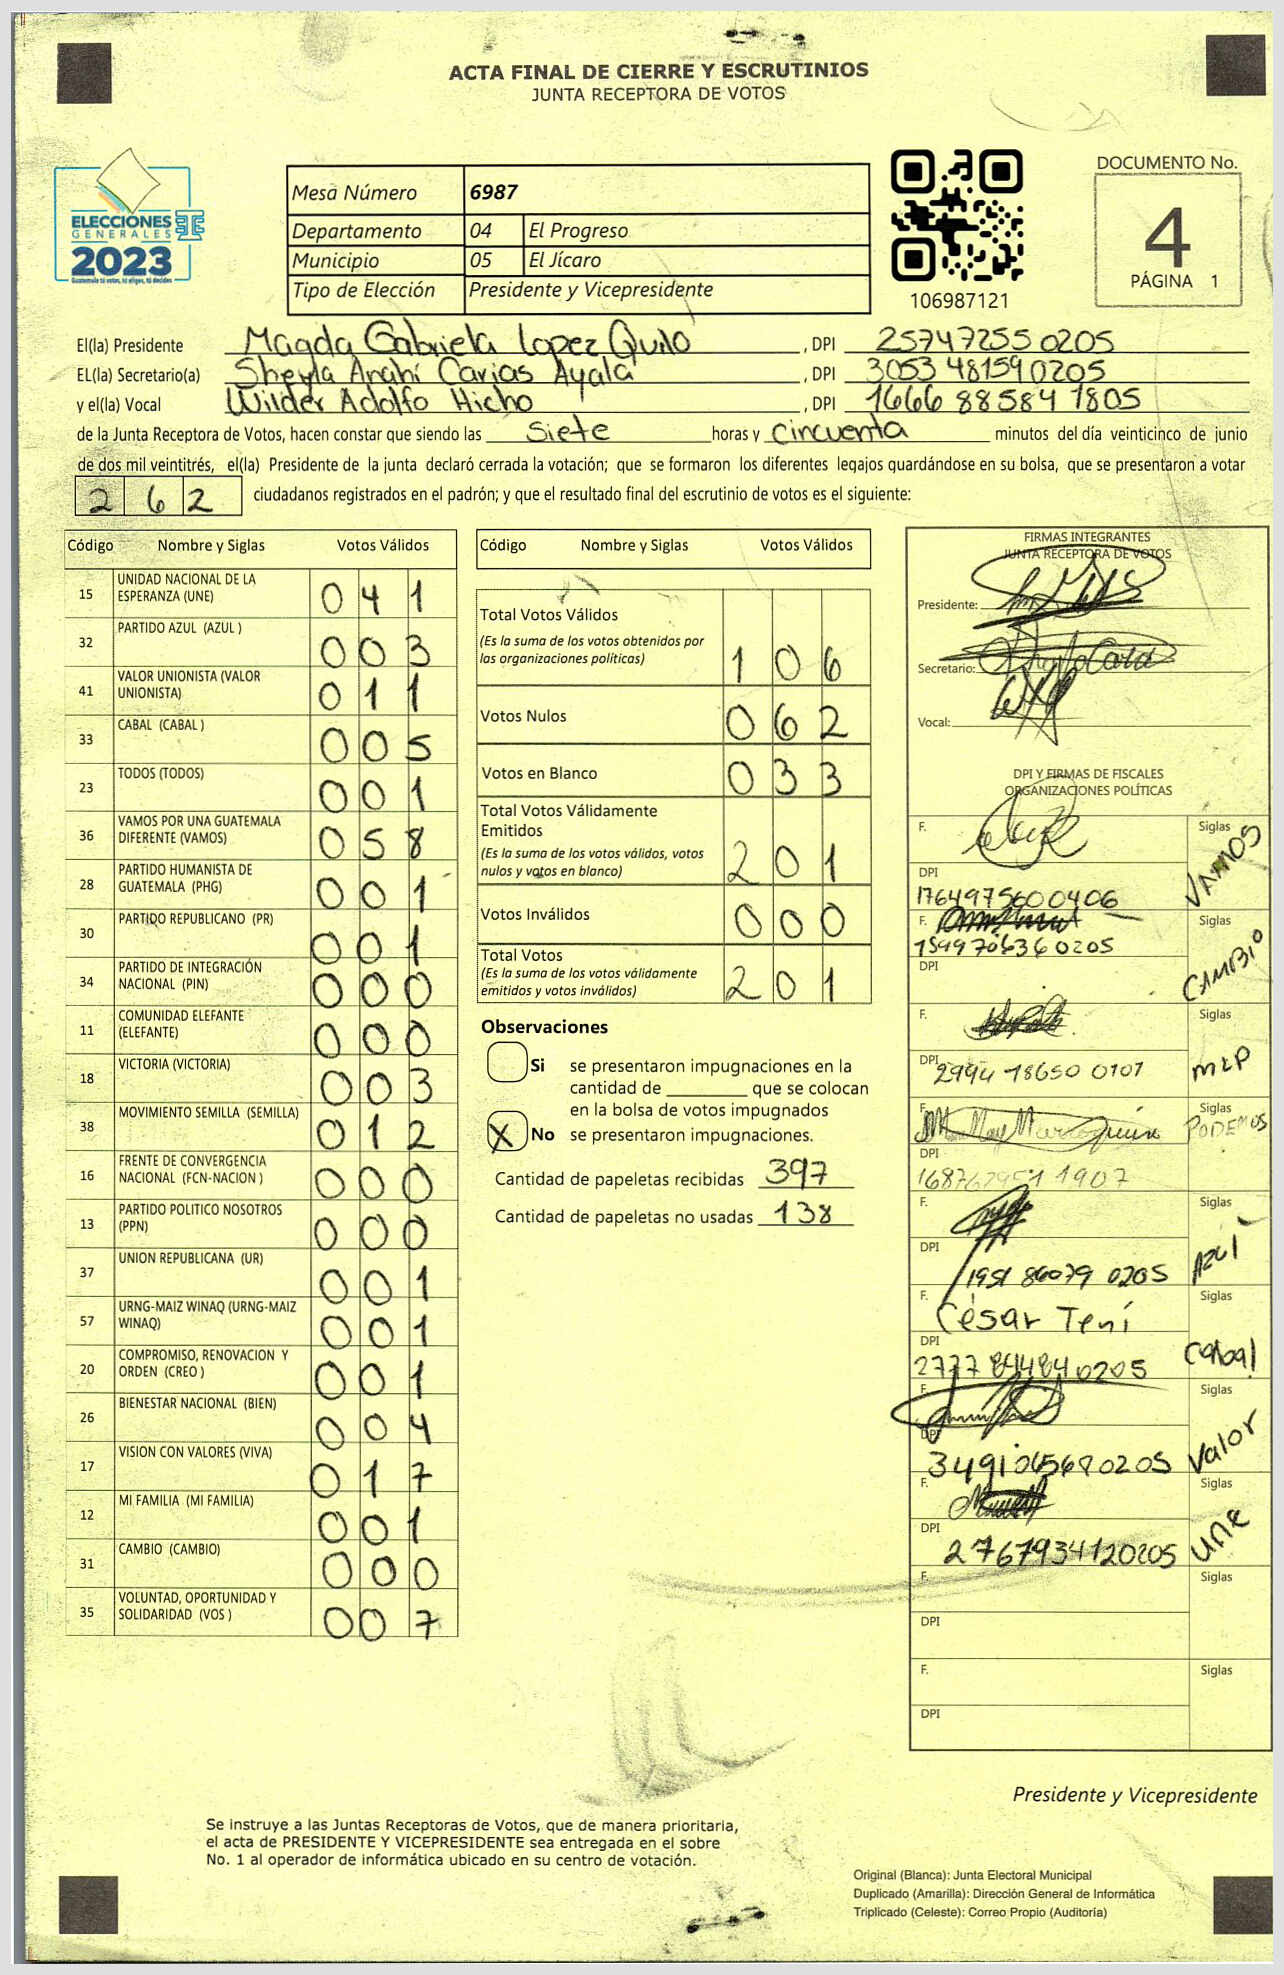 ACTA FINAL DE CIERRE Y ESCRUTINIOS
JUNTA RECEPTORA DE VOTOS
ELECCIONES
GENERALES
2023
Guatemala tú votas, tú eliges, tú decides
Mesa Número 6987
Departamento 04 El Progreso
Municipio 05 El Jícaro
Tipo de Elección Presidente y Vicepresidente
106987121
DOCUMENTO No.
4
PÁGINA 1
El(la) Presidente Magda Gabriela Lopez Quilo , DPI 25747255 0205
EL(la) Secretario(a) Sheyla Anahí Carias Ayala , DPI 3053 48159 0205
y el(la) Vocal Wilder Adolfo Hicho , DPI 1666 88584 1805
de la Junta Receptora de Votos, hacen constar que siendo las siete horas y cincuenta minutos del día veinticinco de junio
de dos mil veintitrés, el(la) Presidente de la junta declaró cerrada la votación; que se formaron los diferentes legajos guardándose en su bolsa, que se presentaron a votar
262 ciudadanos registrados en el padrón; y que el resultado final del escrutinio de votos es el siguiente:
Código Nombre y Siglas Votos Válidos
15 UNIDAD NACIONAL DE LA
ESPERANZA (UNE) 041
32 PARTIDO AZUL (AZUL ) 003
41 VALOR UNIONISTA (VALOR
UNIONISTA) 011
33 CABAL (CABAL ) 005
23 TODOS (TODOS) 001
36 VAMOS POR UNA GUATEMALA
DIFERENTE (VAMOS) 058
28 PARTIDO HUMANISTA DE
GUATEMALA (PHG) 001
30 PARTIDO REPUBLICANO (PR) 001
34 PARTIDO DE INTEGRACIÓN
NACIONAL (PIN) 000
11 COMUNIDAD ELEFANTE
(ELEFANTE) 000
18 VICTORIA (VICTORIA) 003
38 MOVIMIENTO SEMILLA (SEMILLA) 012
16 FRENTE DE CONVERGENCIA
NACIONAL (FCN-NACION ) 000
13 PARTIDO POLITICO NOSOTROS
(PPN) 000
37 UNION REPUBLICANA (UR) 001
57 URNG-MAIZ WINAQ (URNG-MAIZ
WINAQ) 001
20 COMPROMISO, RENOVACION Y
ORDEN (CREO ) 001
26 BIENESTAR NACIONAL (BIEN) 004
17 VISION CON VALORES (VIVA) 017
12 MI FAMILIA (MI FAMILIA) 001
31 CAMBIO (CAMBIO) 000
35 VOLUNTAD, OPORTUNIDAD Y
SOLIDARIDAD (VOS ) 007
Código Nombre y Siglas Votos Válidos
Total Votos Válidos
(Es la suma de los votos obtenidos por
las organizaciones políticas) 106
Votos Nulos 062
Votos en Blanco 033
Total Votos Válidamente
Emitidos
(Es la suma de los votos válidos, votos
nulos y votos en blanco) 201
Votos Inválidos 000
Total Votos
(Es la suma de los votos válidamente
emitidos y votos inválidos) 201
Observaciones
Si se presentaron impugnaciones en la
cantidad de que se colocan
en la bolsa de votos impugnados
X No se presentaron impugnaciones.
Cantidad de papeletas recibidas 397
Cantidad de papeletas no usadas 138
FIRMAS INTEGRANTES
JUNTA RECEPTORA DE VOTOS
Presidente:
Secretario:
Vocal:
DPI Y FIRMAS DE FISCALES
ORGANIZACIONES POLÍTICAS
F. Siglas VAMOS
DPI
1764975600406
F. Siglas CAMBIO
1599706360205
DPI
F. Siglas MLP
DPI 2994 18650 0101
F. Siglas PODEMOS
DPI
F. Siglas Azul
DPI 1951 86079 0205
F. César Tení Siglas Cabal
DPI
2777 84484 0205
F. Siglas Valor
DPI
F. Siglas UNE
DPI
2767934120205
F. Siglas
DPI
F. Siglas
DPI
Presidente y Vicepresidente
Se instruye a las Juntas Receptoras de Votos, que de manera prioritaria,
el acta de PRESIDENTE Y VICEPRESIDENTE sea entregada en el sobre
No. 1 al operador de informática ubicado en su centro de votación.
Original (Blanca): Junta Electoral Municipal
Duplicado (Amarilla): Dirección General de Informática
Triplicado (Celeste): Correo Propio (Auditoría)